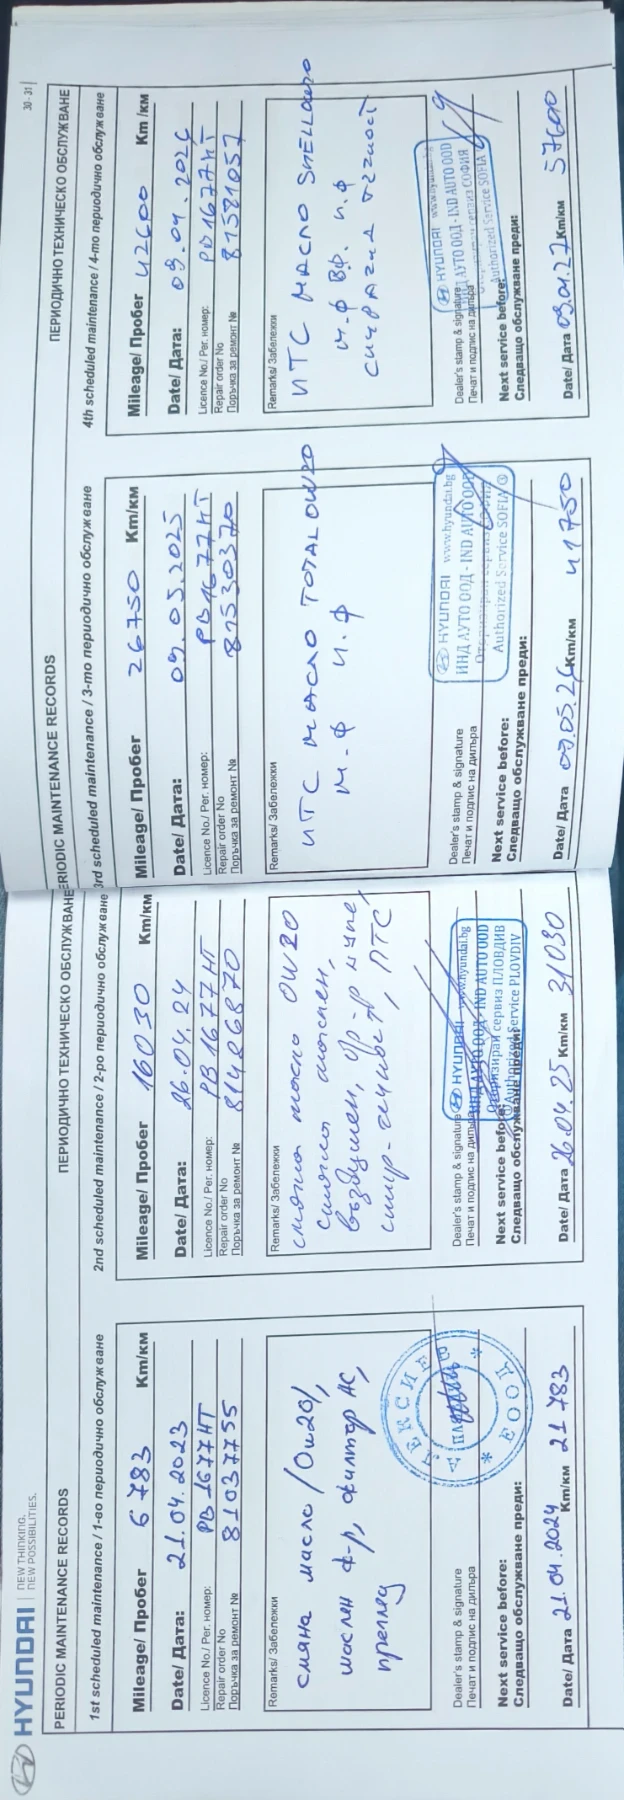 HYUNDAI | NEW THINKING.
NEW POSSIBILITIES.
PERIODIC MAINTENANCE RECORDS
ПЕРИОДИЧНО ТЕХНИЧЕСКО ОБСЛУЖВАНЕ
1st scheduled maintenance / 1-во периодично обслужване
Mileage/ Пробег 6 783 Km/км
Date/ Дата: 21.04.2023
Licence No./ Рег. номер: РВ 1677 НТ
Repair order No
Поръчка за ремонт № 81037755
Remarks/ Забележки
смяна масло /0w20/,
маслен ф-р, филтор АС,
преглед
Dealer's stamp & signature
Печат и подпис на дилъра
ЕООД
Next service before:
Следващо обслужване преди:
Date/ Дата 21.04.2024 Km/км 21 783
2nd scheduled maintenance / 2-ро периодично обслужване
Mileage/ Пробег 16030 Km/км
Date/ Дата: 26.04.24
Licence No./ Рег. номер: РВ 1677 НТ
Repair order No
Поръчка за ремонт № 81426870
Remarks/ Забележки
смяна масло 0W20
смяна маслен,
въздушен, ф-р купе,
ПТС
Dealer's stamp & signature
Печат и подпис на дилъра
HYUNDAI www.hyundai.bg
ИНД АУТО ООД - IND AUTO OOD
Оторизиран сервиз ПЛОВДИВ
Authorized Service PLOVDIV
Next service before:
Следващо обслужване преди:
Date/ Дата 26.04.25 Km/км 31030
30 - 31
PERIODIC MAINTENANCE RECORDS
ПЕРИОДИЧНО ТЕХНИЧЕСКО ОБСЛУЖВАНЕ
3rd scheduled maintenance / 3-то периодично обслужване
Mileage/ Пробег 26750 Km/км
Date/ Дата: 09.05.2025
Licence No./ Рег. номер: РВ1677НТ
Repair order No
Поръчка за ремонт № 81530370
Remarks/ Забележки
ИТС МАСЛО TOTAL 0W20
М.Ф И.Ф
Dealer's stamp & signature
Печат и подпис на дилъра
HYUNDAI www.hyundai.bg
ИНД АУТО ООД - IND AUTO OOD
Authorized Service SOFIA
Next service before:
Следващо обслужване преди:
Date/ Дата 09.05.26 Km/км 41750
4th scheduled maintenance / 4-то периодично обслужване
Mileage/ Пробег 42600 Km /км
Date/ Дата: 09.01.2026
Licence No./ Рег. номер: РВ1677НТ
Repair order No
Поръчка за ремонт № 81581057
Remarks/ Забележки
ИТС МАСЛО SHELL
М.Ф В.Ф. И.Ф
Dealer's stamp & signature
Печат и подпис на дилъра
HYUNDAI www.hyundai.bg
ИНД АУТО ООД - IND AUTO OOD
Оторизиран сервиз СОФИЯ
Authorized Service SOFIA
Next service before:
Следващо обслужване преди:
Date/ Дата 09.01.27 Km/км 57600